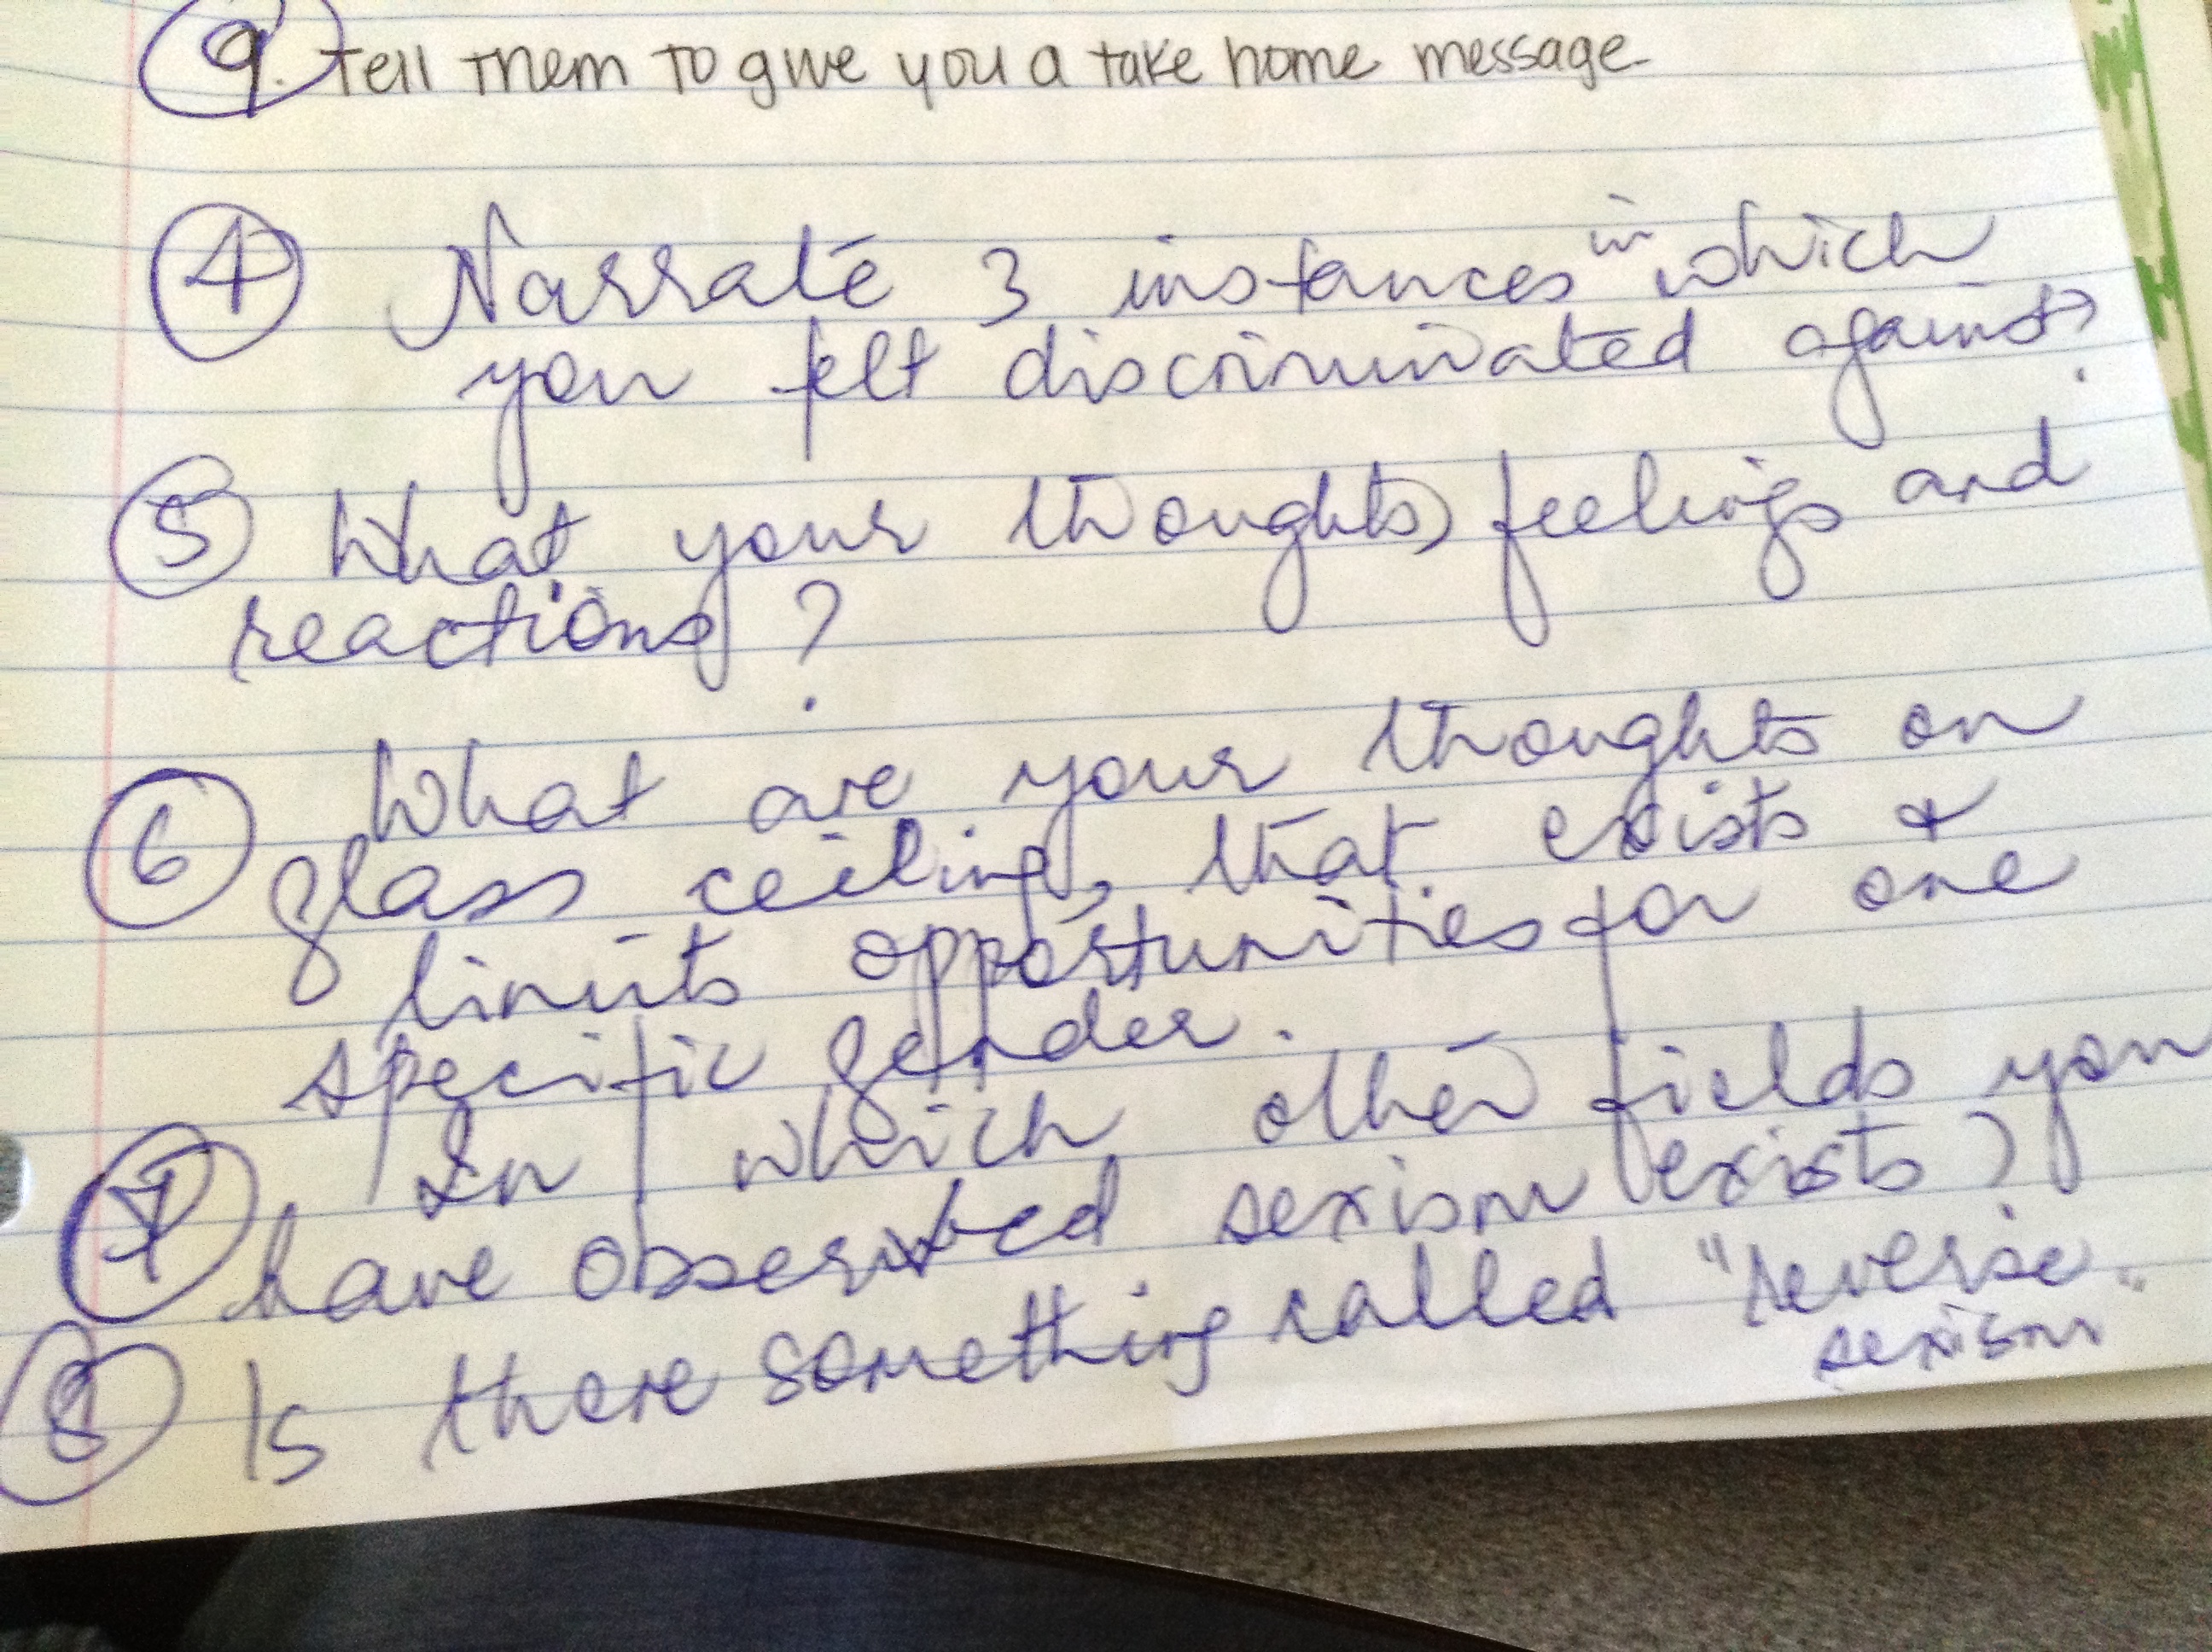 9. Tell them to give you a take home message
4 Narrate 3 instances in which
you felt discriminated against?
5 What your thoughts, feelings and
reactions?
6 What are your thoughts on
glass ceiling, that exists &
limits opportunities for one
specific gender.
7 In which other fields you
have observed sexism exists?
8 Is there something called "reverse
sexism"